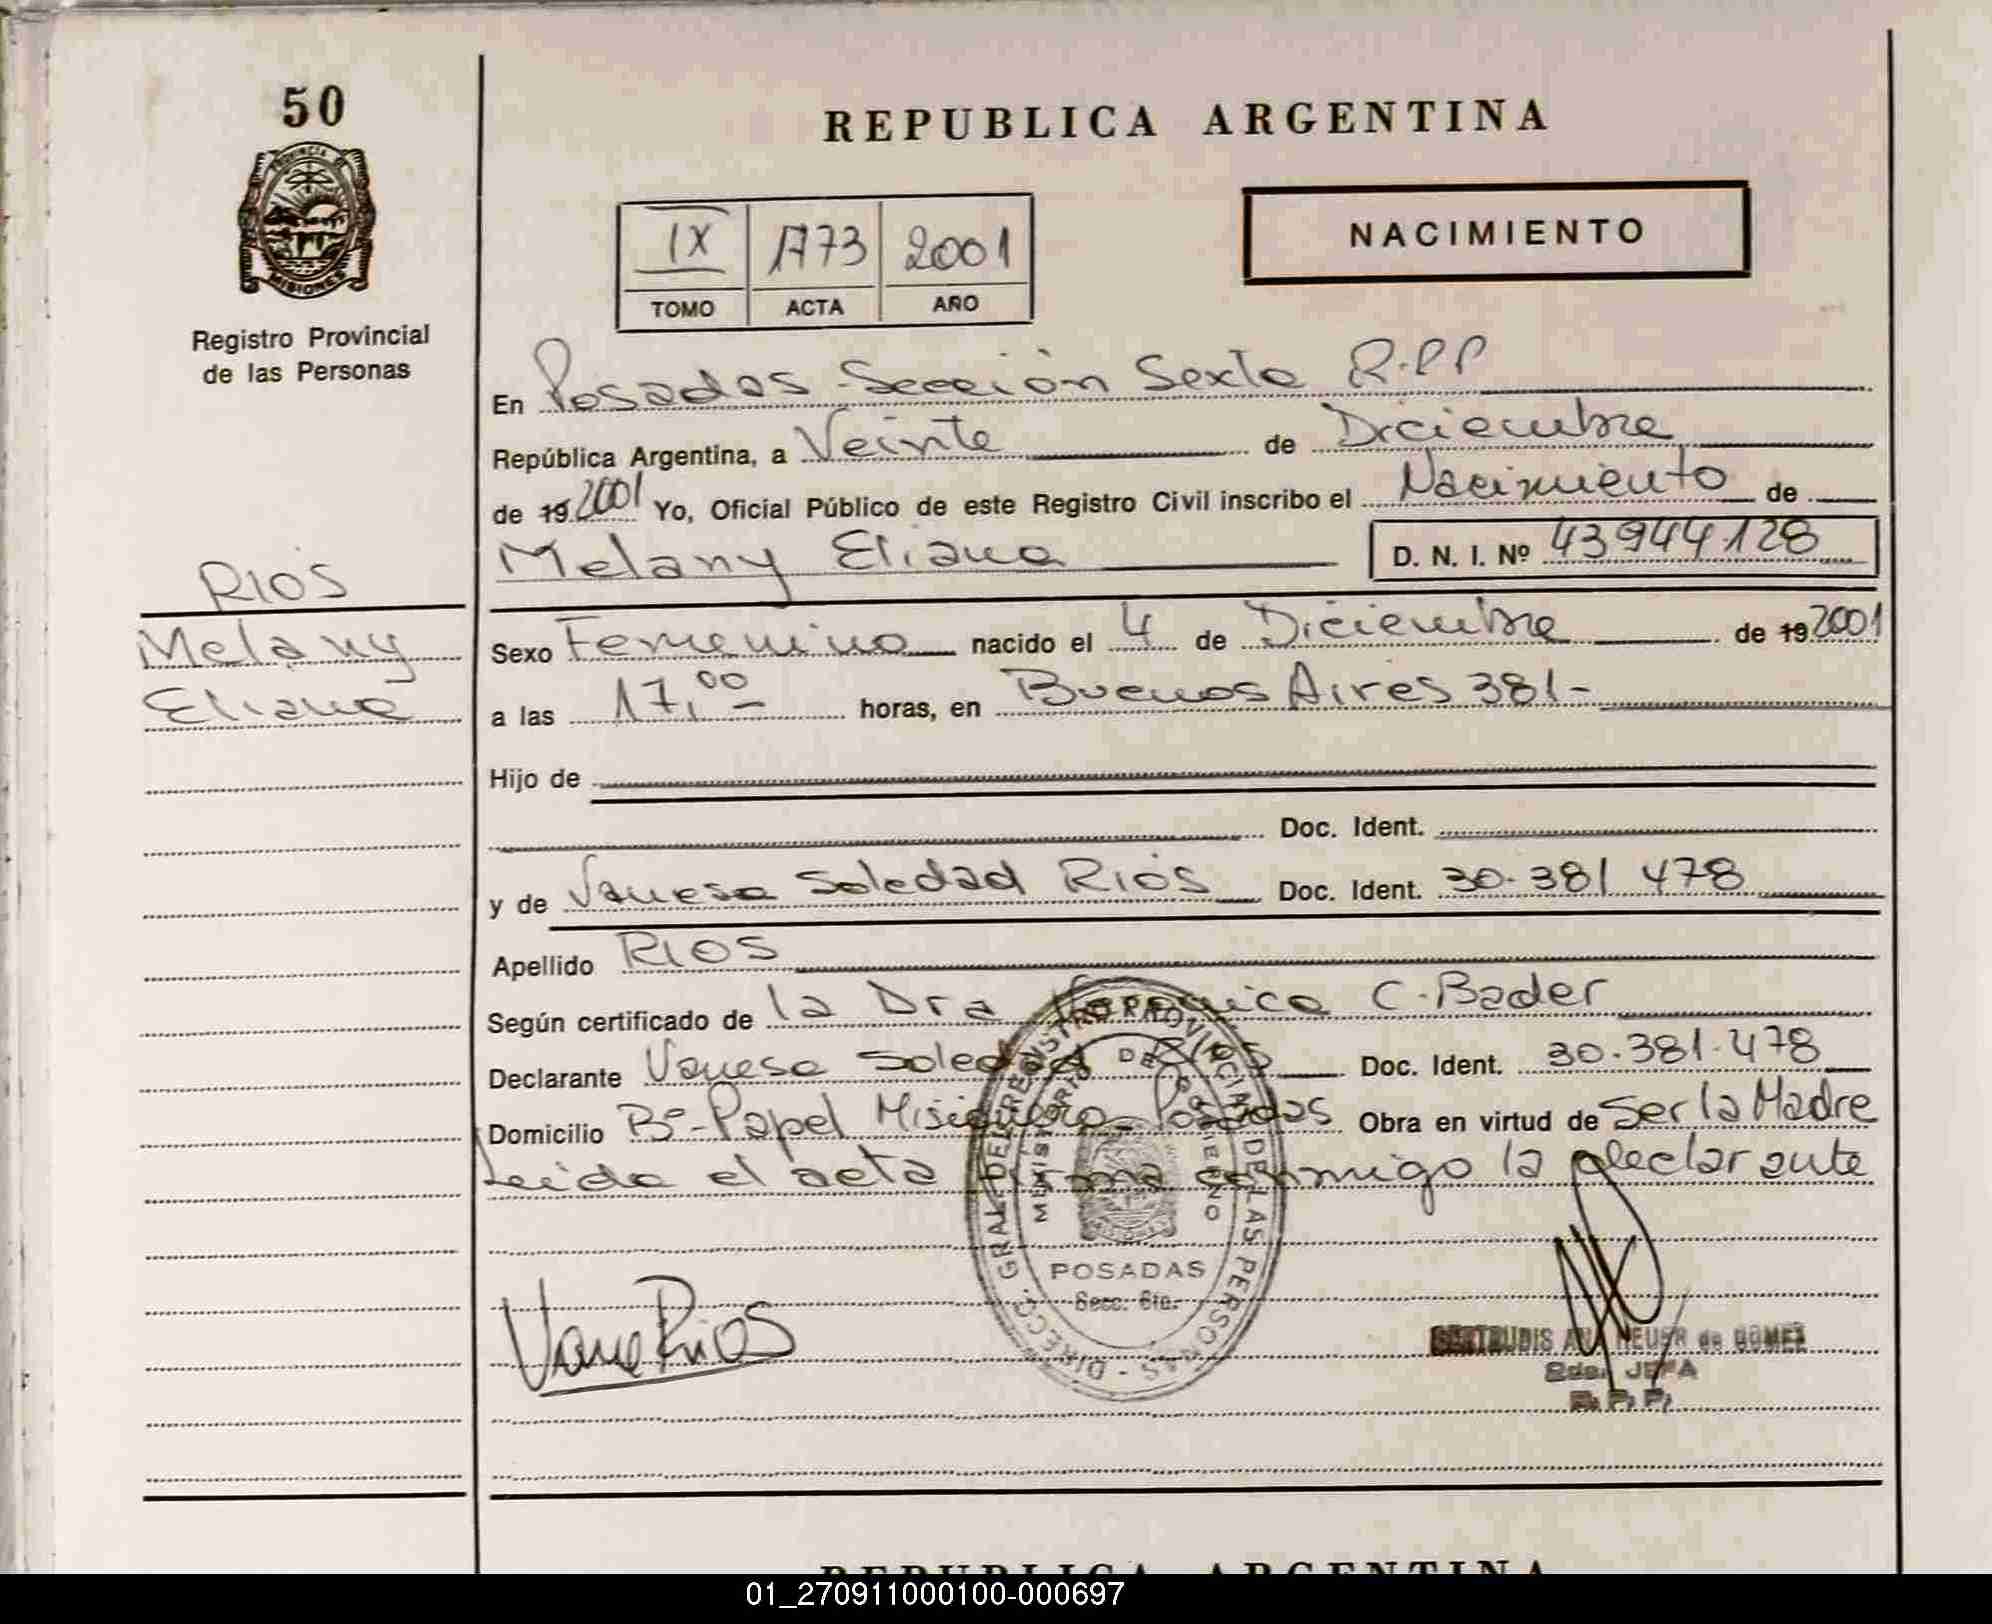 50
PROVINCIA DE
MISIONES
Registro Provincial
de las Personas
REPUBLICA ARGENTINA
IX 1773 2001
TOMO ACTA AÑO
NACIMIENTO
En Posadas - Sección Sexta R.P.P
República Argentina, a Veinte de Diciembre
de 19 2001 Yo, Oficial Público de este Registro Civil inscribo el Nacimiento de
Melany Eliana D. N. I. Nº 43944128
RIOS
Melany
Eliana
Sexo Femenino nacido el 4 de Diciembre de 19 2001
a las 17,00 horas, en Buenos Aires 381-
Hijo de
Doc. Ident.
y de Vanesa Soledad Rios Doc. Ident. 30.381 478
Apellido RIOS
Según certificado de la Dra Veronica C. Bader
Declarante Vanesa Soledad Rios Doc. Ident. 30.381.478
Domicilio Bº-Papel Misionero - Posadas Obra en virtud de Ser la Madre
Leida el acta firma conmigo la declarante
DIRECC. GRAL DEL REGISTRO PROVINCIAL DE LAS PERSONAS
MINISTERIO DE GOBIERNO
POSADAS
Secc. 6ta.
Vane Rios
GERTRUDIS ANA NEUER de GOMEZ
2da. JEFA
R. P. P.
REPUBLICA ARGENTINA
01_270911000100-000697